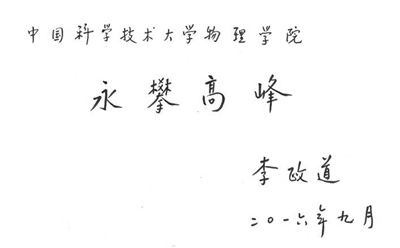 中国科学技术大学物理学院
永攀高峰
李政道
二〇一六年九月